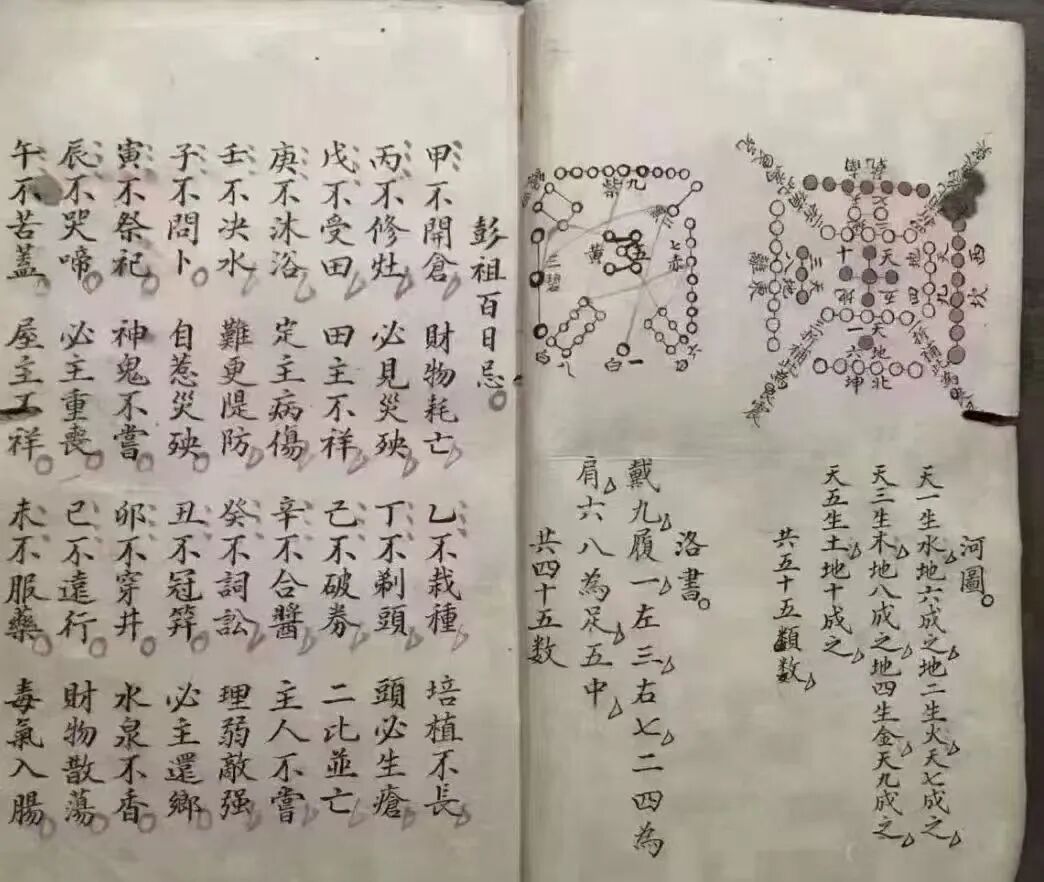 西坎
天九
地四
天
天五
十
地
天一
地六
北坤
三天
八地
東離
河圖
天一生水地六成之地二生火天七成之
天三生木地八成之地四生金天九成之
天五生土地十成之
共五十五類数
九紫
七赤
五黃
三碧
六
一白
八白
洛書
戴九履一左三右七二四為
肩六八為足五中
共四十五数
彭祖百日忌
甲不開倉 財物耗亡 乙不栽種 培植不長
丙不修灶 必見災殃 丁不剃頭 頭必生瘡
戊不受田 田主不祥 己不破券 二比並亡
庚不沐浴 定主病傷 辛不合醬 主人不嘗
壬不决水 難更隄防 癸不詞訟 理弱敵强
子不問卜 自惹災殃 丑不冠笄 必主還鄉
寅不祭祀 神鬼不嘗 卯不穿井 水泉不香
辰不哭啼 必主重喪 巳不遠行 財物散蕩
午不苦蓋 屋主不祥 未不服藥 毒氣入腸